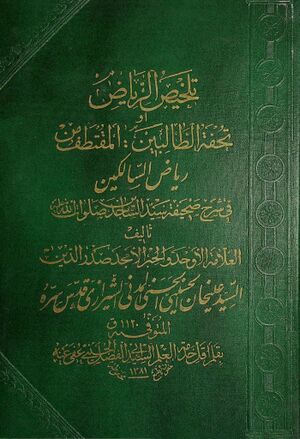 تلخيص الرياض
او
تحفة الطالبين: المقتطف من
رياض السالكين
في شرح صحيفة سيد الساجدين صلوات الله
تأليف
العلامة الأوحد والحبر الأمجد صدر الدين
السيد عليخان الحسيني الحسني المدني الشيرازي قدس سره
المتوفى ١١٢٠ ق
بقلم اقل خدمة العلم السيد ابو الفضل الحسيني عفي عنه
١٣٨١